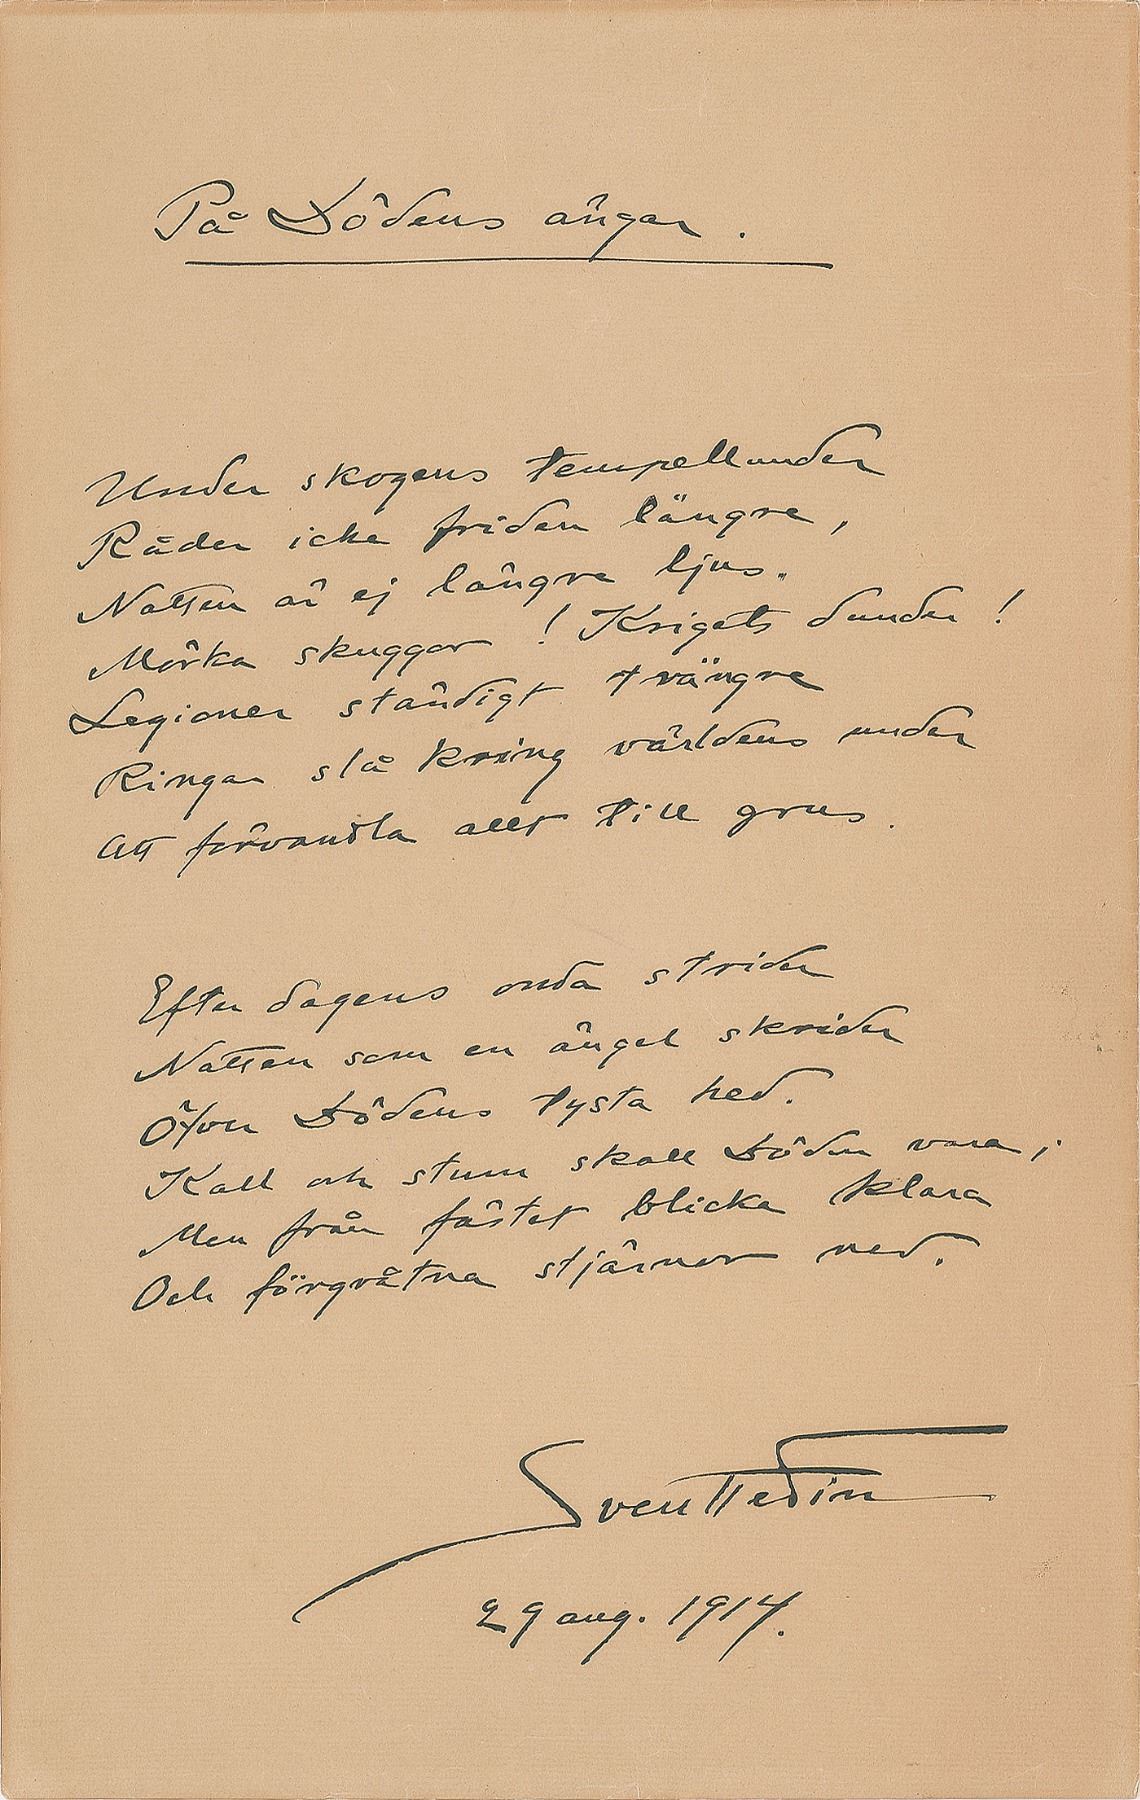 På Dödens ängar.
Under skogens tempellunder
Råder icke friden längre,
Natten är ej längre ljus.
Mörka skuggor! Krigets dunder!
Legioner ständigt trängre
Ringar slå kring världens under
Att förvandla allt till grus.
Efter dagens onda strider
Natten som en ängel skrider
Öfver Dödens tysta hed.
Kall och stum skall Döden vara;
Men från fästet blicka klara
Och förgråtna stjärnor ned.
Sven Hedin
29 aug. 1914.